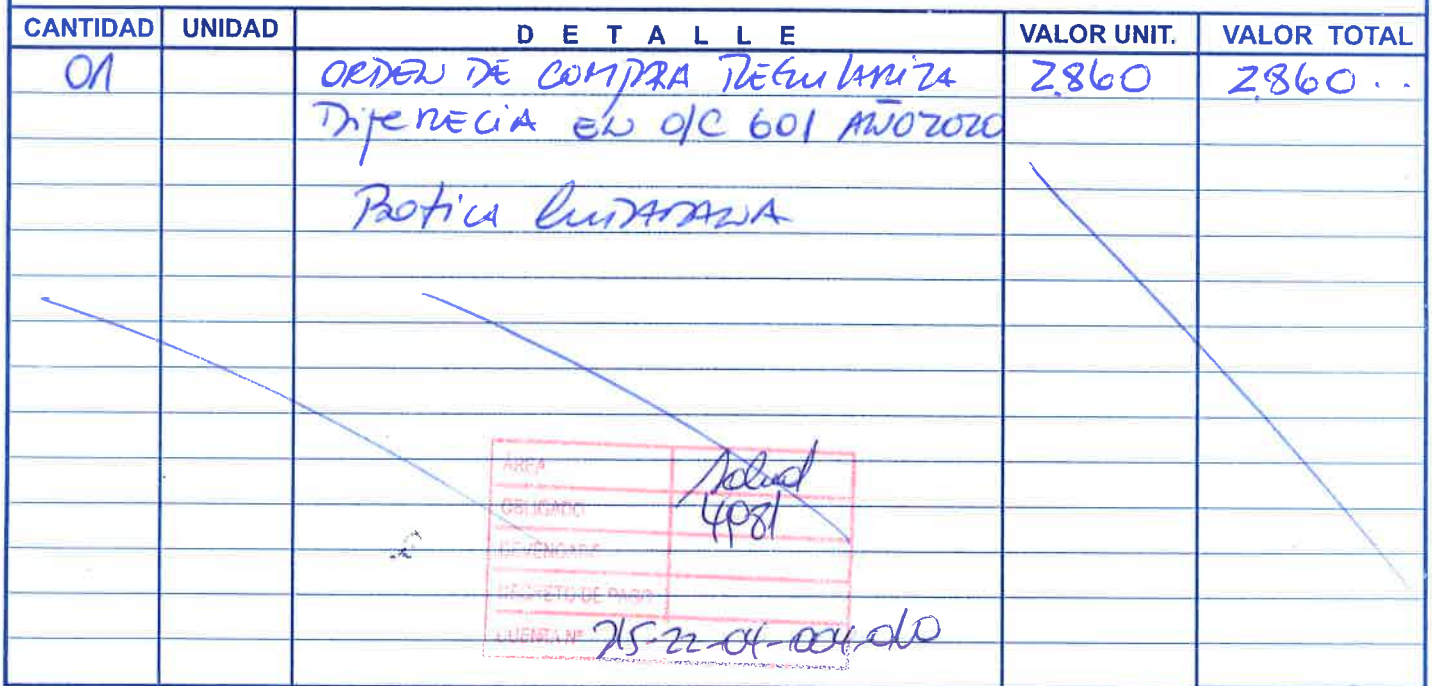 CANTIDAD UNIDAD DETALLE VALOR UNIT. VALOR TOTAL
01 ORDEN DE COMPRA REGULARIZA 2860 2860..
DiferECiA EN O/C 601 AÑO2020
BOTICA CIUDADANA
AREA Salud
OBLIGADO 4081
DEVENGADO
DECRETO DE PAGO
CUENTA N° 215-22-04-004-010